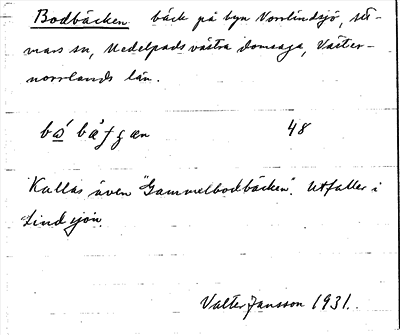 Bodbäcken bäck på byn Vorrlindsjö, Att-
mars sn, Medelpads västra domsaga, Väster-
norrlands län.
48
Kallas även "Gammelbodbäcken". Utfaller i
Lindsjön.
Valter Jansson 1931.